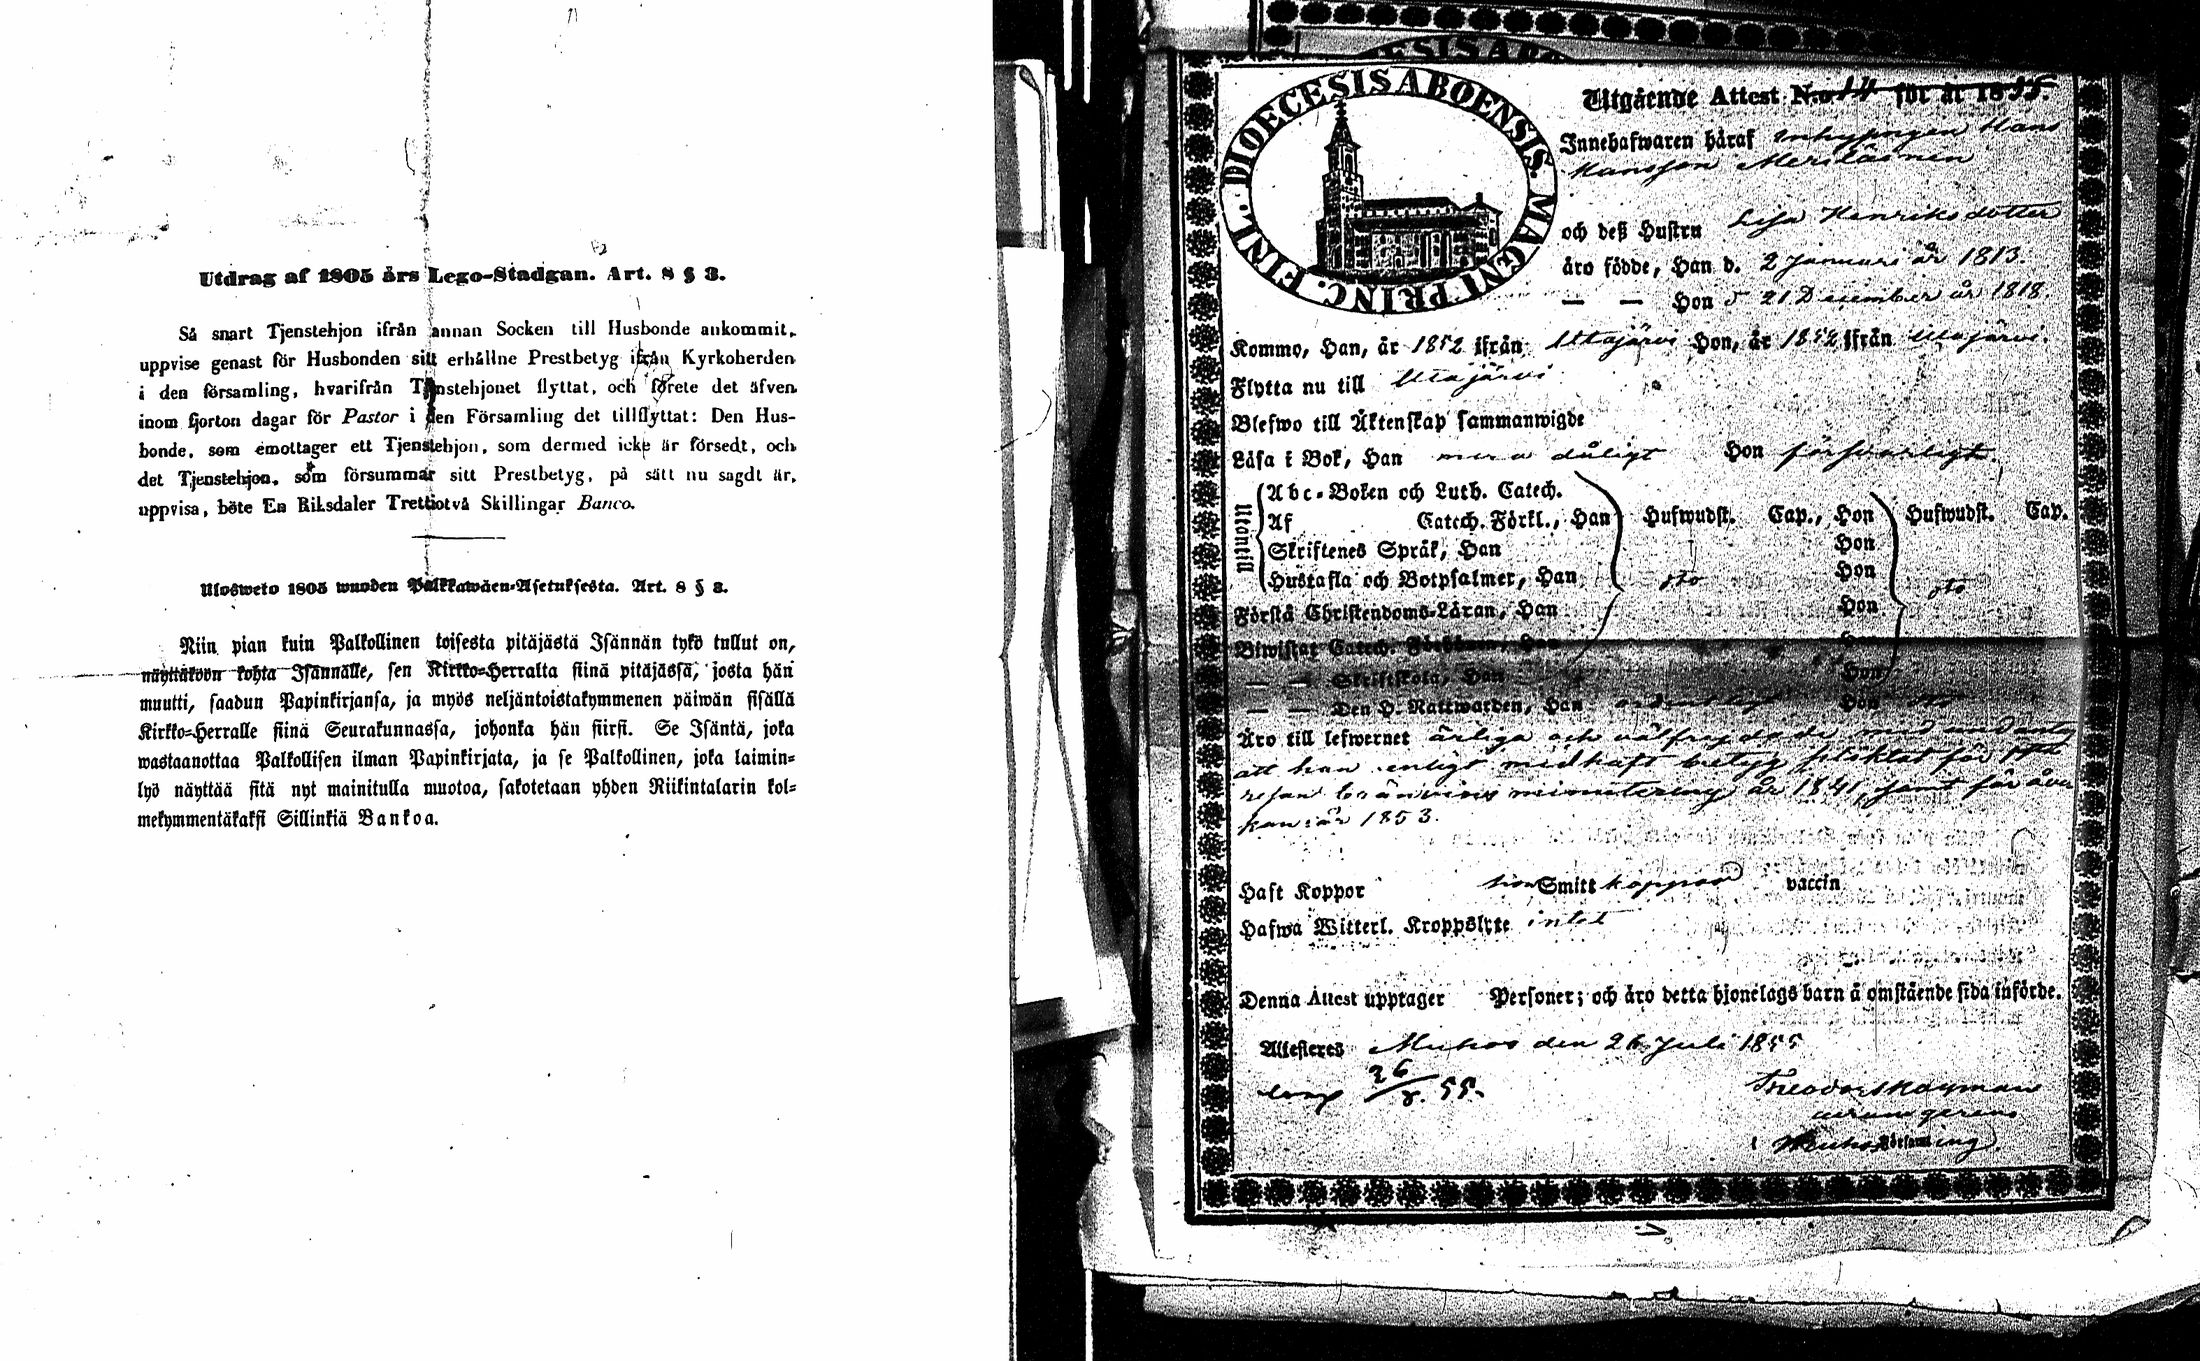 Utdrag af 1805 års Lego-Stadgan. Art. 8 § 3.
Så snart Tjenstehjon ifrån annan Socken till Husbonde ankommit,
uppvise genast för Husbonden sitt erhållne Prestbetyg ifrån Kyrkoherden
i den församling, hvarifrån Tjenstehjonet flyttat, och förete det äfven
inom fjorton dagar för Pastor i den Församling det tillflyttat: Den Hus-
bonde, som emottager ett Tjenstehjon, som dermed icke är försedt, och
det Tjenstehjon, som försummar sitt Prestbetyg, på sätt nu sagdt är,
uppvisa, böte En Riksdaler Trettiotvå Skillingar Banco.
Ulosweto 1805 wuoden Palkkawäen-Asetuksesta. Art. 8 § 3.
Niin pian kuin Palkollinen toisesta pitäjästä Isännän tykö tullut on,
näyttäköön kohta Isännälle, sen Kirkko-Herralta siinä pitäjässä, josta hän
muutti, saadun Papinkirjansa, ja myös neljäntoistakymmenen päiwän sisällä
Kirkko-Herralle siinä Seurakunnassa, johonka hän siirsi. Se Isäntä, joka
wastaanottaa Palkollisen ilman Papinkirjata, ja se Palkollinen, joka laimin-
lyö näyttää sitä nyt mainitulla muotoa, sakotetaan yhden Riikintalarin kol-
mekymmentäkaksi Sillinkiä Bankoa.
DIOECESIS ABOENSIS. MAGNI PRINC. FINL.
Utgående Attest N:o 14 för år 1855.
Innehafwaren häraf inhysingen Hans
Hansson Meriläinen
och deß Hustru Lisa Henriksdotter
äro födde, Han d. 2 Januari år 1813.
— — Hon d 21 December år 1818.
Kommo, Han, år 1852 ifrån Utajärvi Hon, år 1852 ifrån Utajärvi.
Flytta nu till Utajärvi
Blefwo till Äktenskap sammanwigde
Läsa i Bok, Han mera dåligt Hon försvarligt
Utantill
Abc-Boken och Luth. Catech.
Af Catech. Förkl., Han Hufwudst. Cap., Hon Hufwudst. Cap.
Skriftenes Språk, Han Hon
Hustafla och Botpsalmer, Han dto Hon dto
Förstå Christendoms-Läran, Han Hon
Biwistat Catech. Förhören, Han Hon
— — Skriftskola, Han Hon
— — Den H. Nattwarden, Han ordentligt Hon dto
Äro till lefwernet ärliga och välfrejdade med undantag
att han enligt medhaft betyg pliktat för
resan bränvins minutering år 1841, samt för åver
kan år 1853.
Haft Koppor hon Smitt koppor vaccin
Hafwa Witterl. Kroppslyte intet
Denna Attest upptager Personer; och äro detta hjonelags barn å omstående sida införde.
Attesteras Muhos den 26 Juli 1855
26/8. 55.
Theodor Hayman
i Muhos Församling.